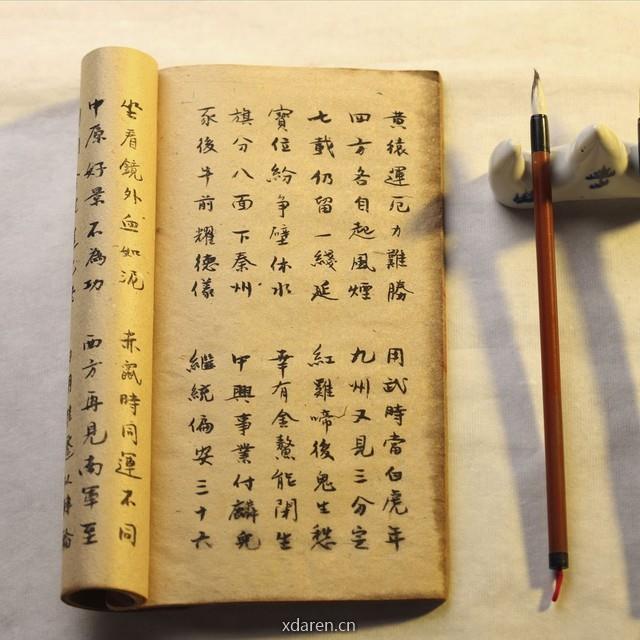 黃猿運厄力難勝 用武時當白虎年
四方各自起風煙 九州又見三分定
七載仍留一綫延 紅雞啼後鬼生愁
寶位紛争壁休水 幸有金鰲能生
旗分八面下秦州 中興事業付麟兒
豕後牛前耀德儀 繼統偏安三十六
坐看鏡外血如泥 赤鼠時同運不同
中原好景不為功 西方再見南軍至
xdaren.cn